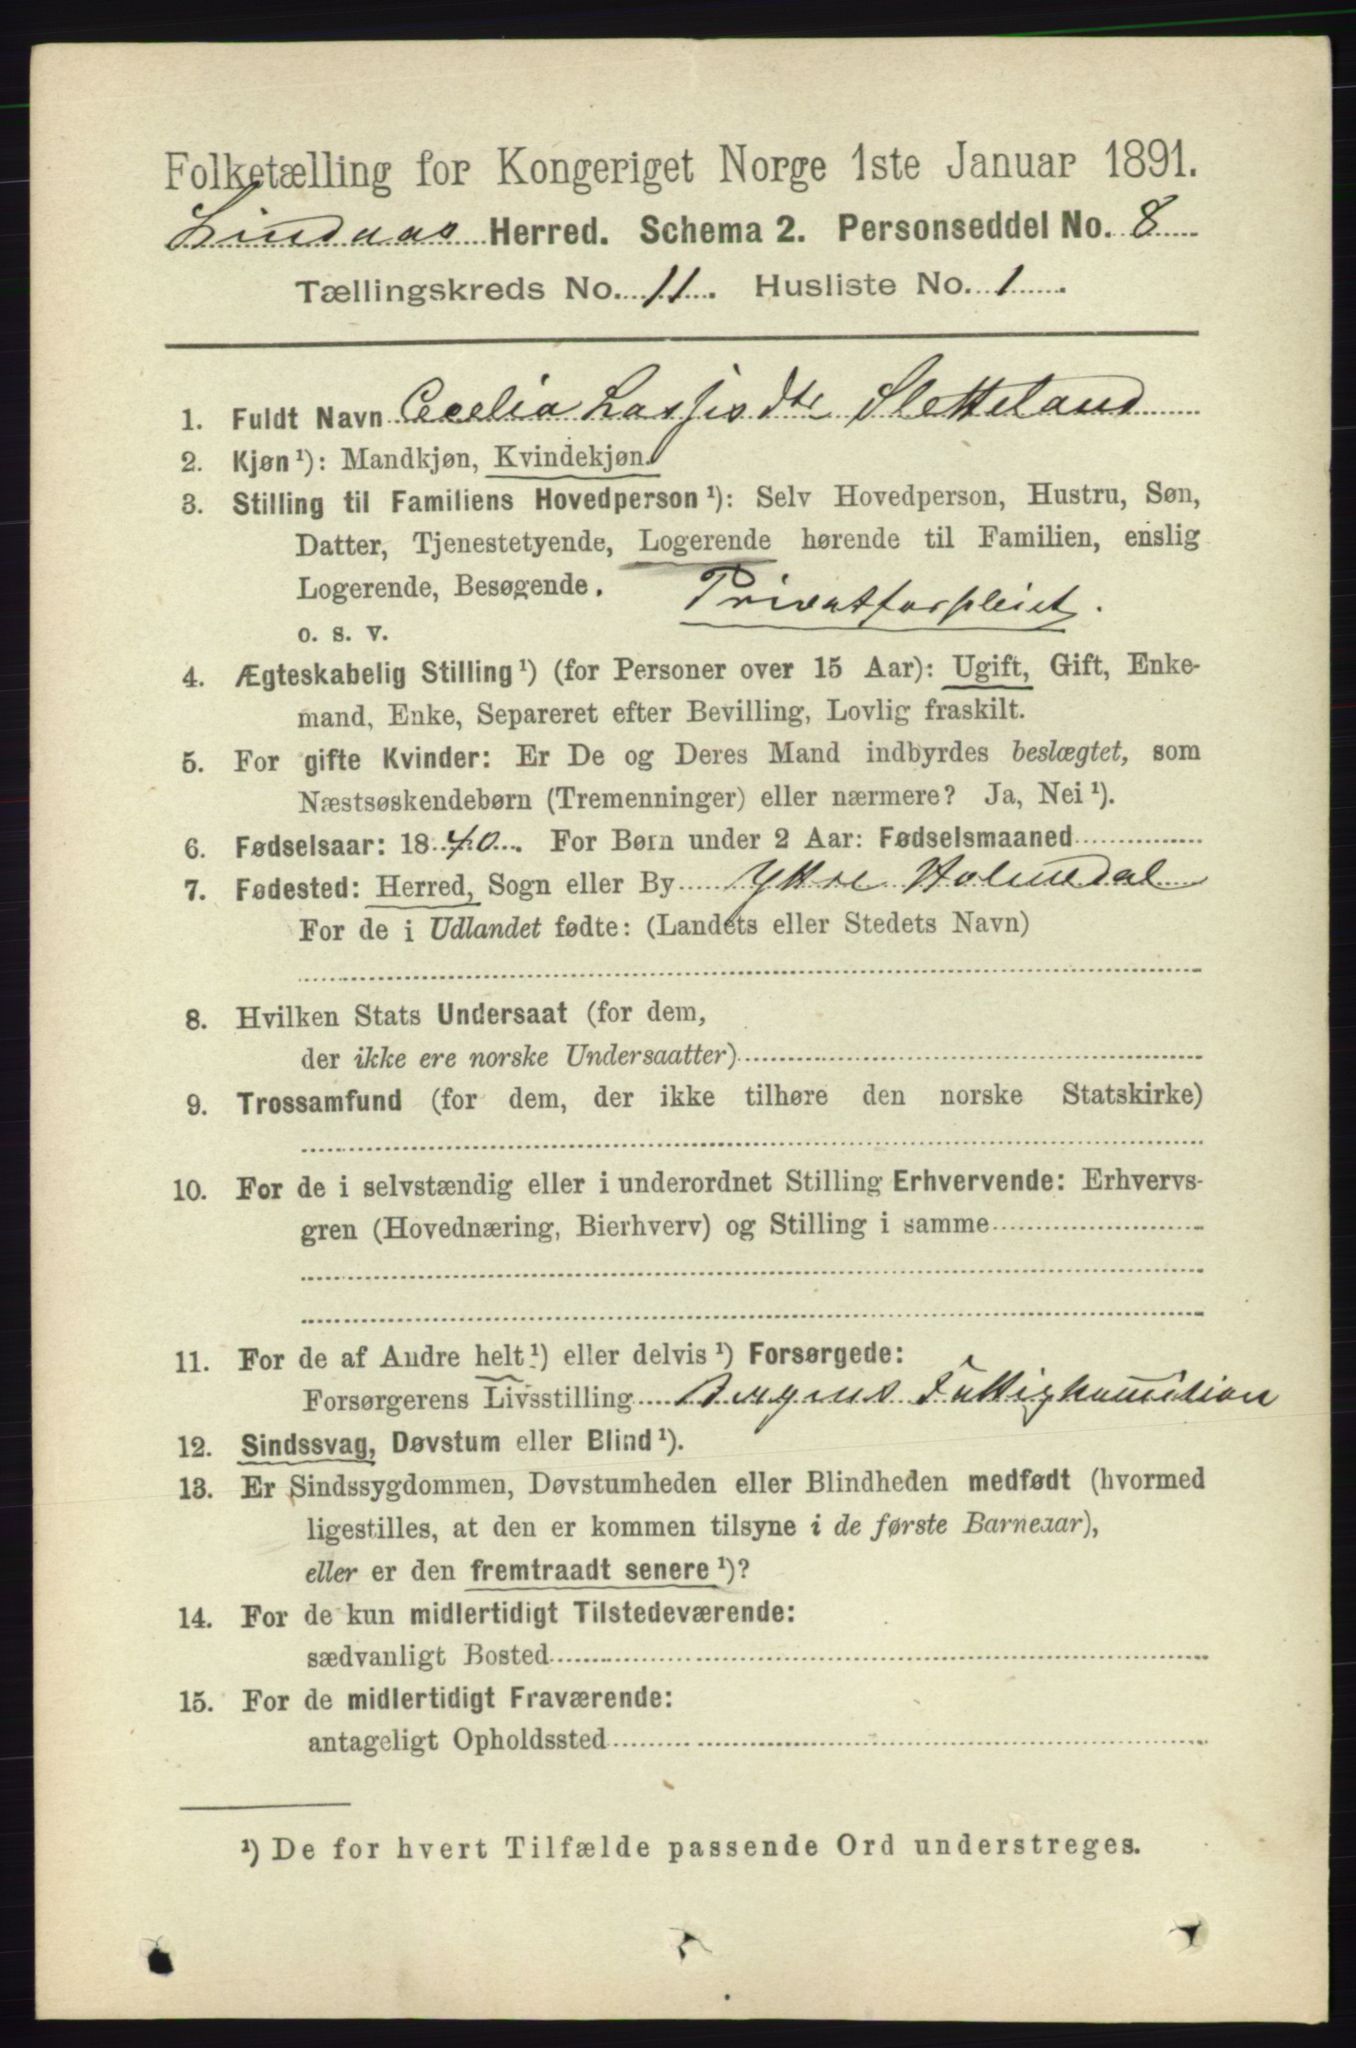 Folketælling for Kongeriget Norge 1ste Januar 1891.
Lindaas Herred. Schema 2. Personseddel No. 8
Tællingskreds No. 11. Husliste No. 1
1. Fuldt Navn Cecelia Lassesdtr Sletteland
2. Kjøn¹): Mandkjøn, Kvindekjøn.
3. Stilling til Familiens Hovedperson¹): Selv Hovedperson, Hustru, Søn,
Datter, Tjenestetyende, Logerende hørende til Familien, enslig
Logerende, Besøgende.
Privatforpleiet.
o. s. v.
4. Ægteskabelig Stilling¹) (for Personer over 15 Aar): Ugift, Gift, Enke-
mand, Enke, Separeret efter Bevilling, Lovlig fraskilt.
5. For gifte Kvinder: Er De og Deres Mand indbyrdes beslægtet, som
Næstsøskendebørn (Tremenninger) eller nærmere? Ja, Nei¹).
6. Fødselsaar: 1840. For Børn under 2 Aar: Fødselsmaaned
7. Fødested: Herred, Sogn eller By Yttre Holmedal
For de i Udlandet fødte: (Landets eller Stedets Navn)
8. Hvilken Stats Undersaat (for dem,
der ikke ere norske Undersaatter)
9. Trossamfund (for dem, der ikke tilhøre den norske Statskirke)
10. For de i selvstændig eller i underordnet Stilling Erhvervende: Erhvervs-
gren (Hovednæring, Bierhverv) og Stilling i samme
11. For de af Andre helt¹) eller delvis¹) Forsørgede:
Forsørgerens Livsstilling Bergens
12. Sindssvag, Døvstum eller Blind¹).
13. Er Sindssygdommen, Døvstumheden eller Blindheden medfødt (hvormed
ligestilles, at den er kommen tilsyne i de første Barneaar),
eller er den fremtraadt senere¹)?
14. For de kun midlertidigt Tilstedeværende:
sædvanligt Bosted
15. For de midlertidigt Fraværende:
antageligt Opholdssted
¹) De for hvert Tilfælde passende Ord understreges.